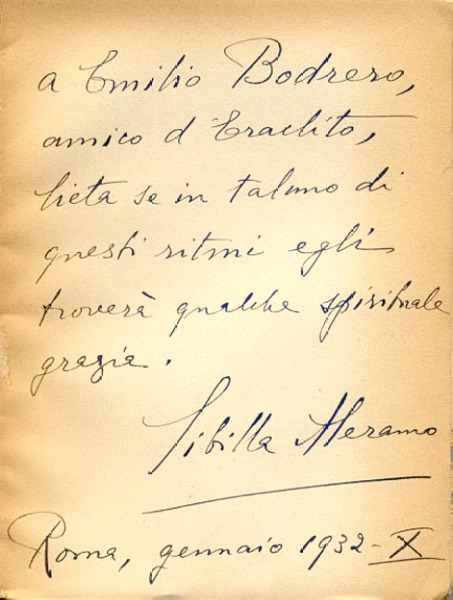 a Emilio Bodrero,
amico d'Eraclito,
lieta se in taluno di
questi ritmi egli
troverà qualche spirituale
grazia.
Sibilla Aleramo
Roma, gennaio 1932 - X